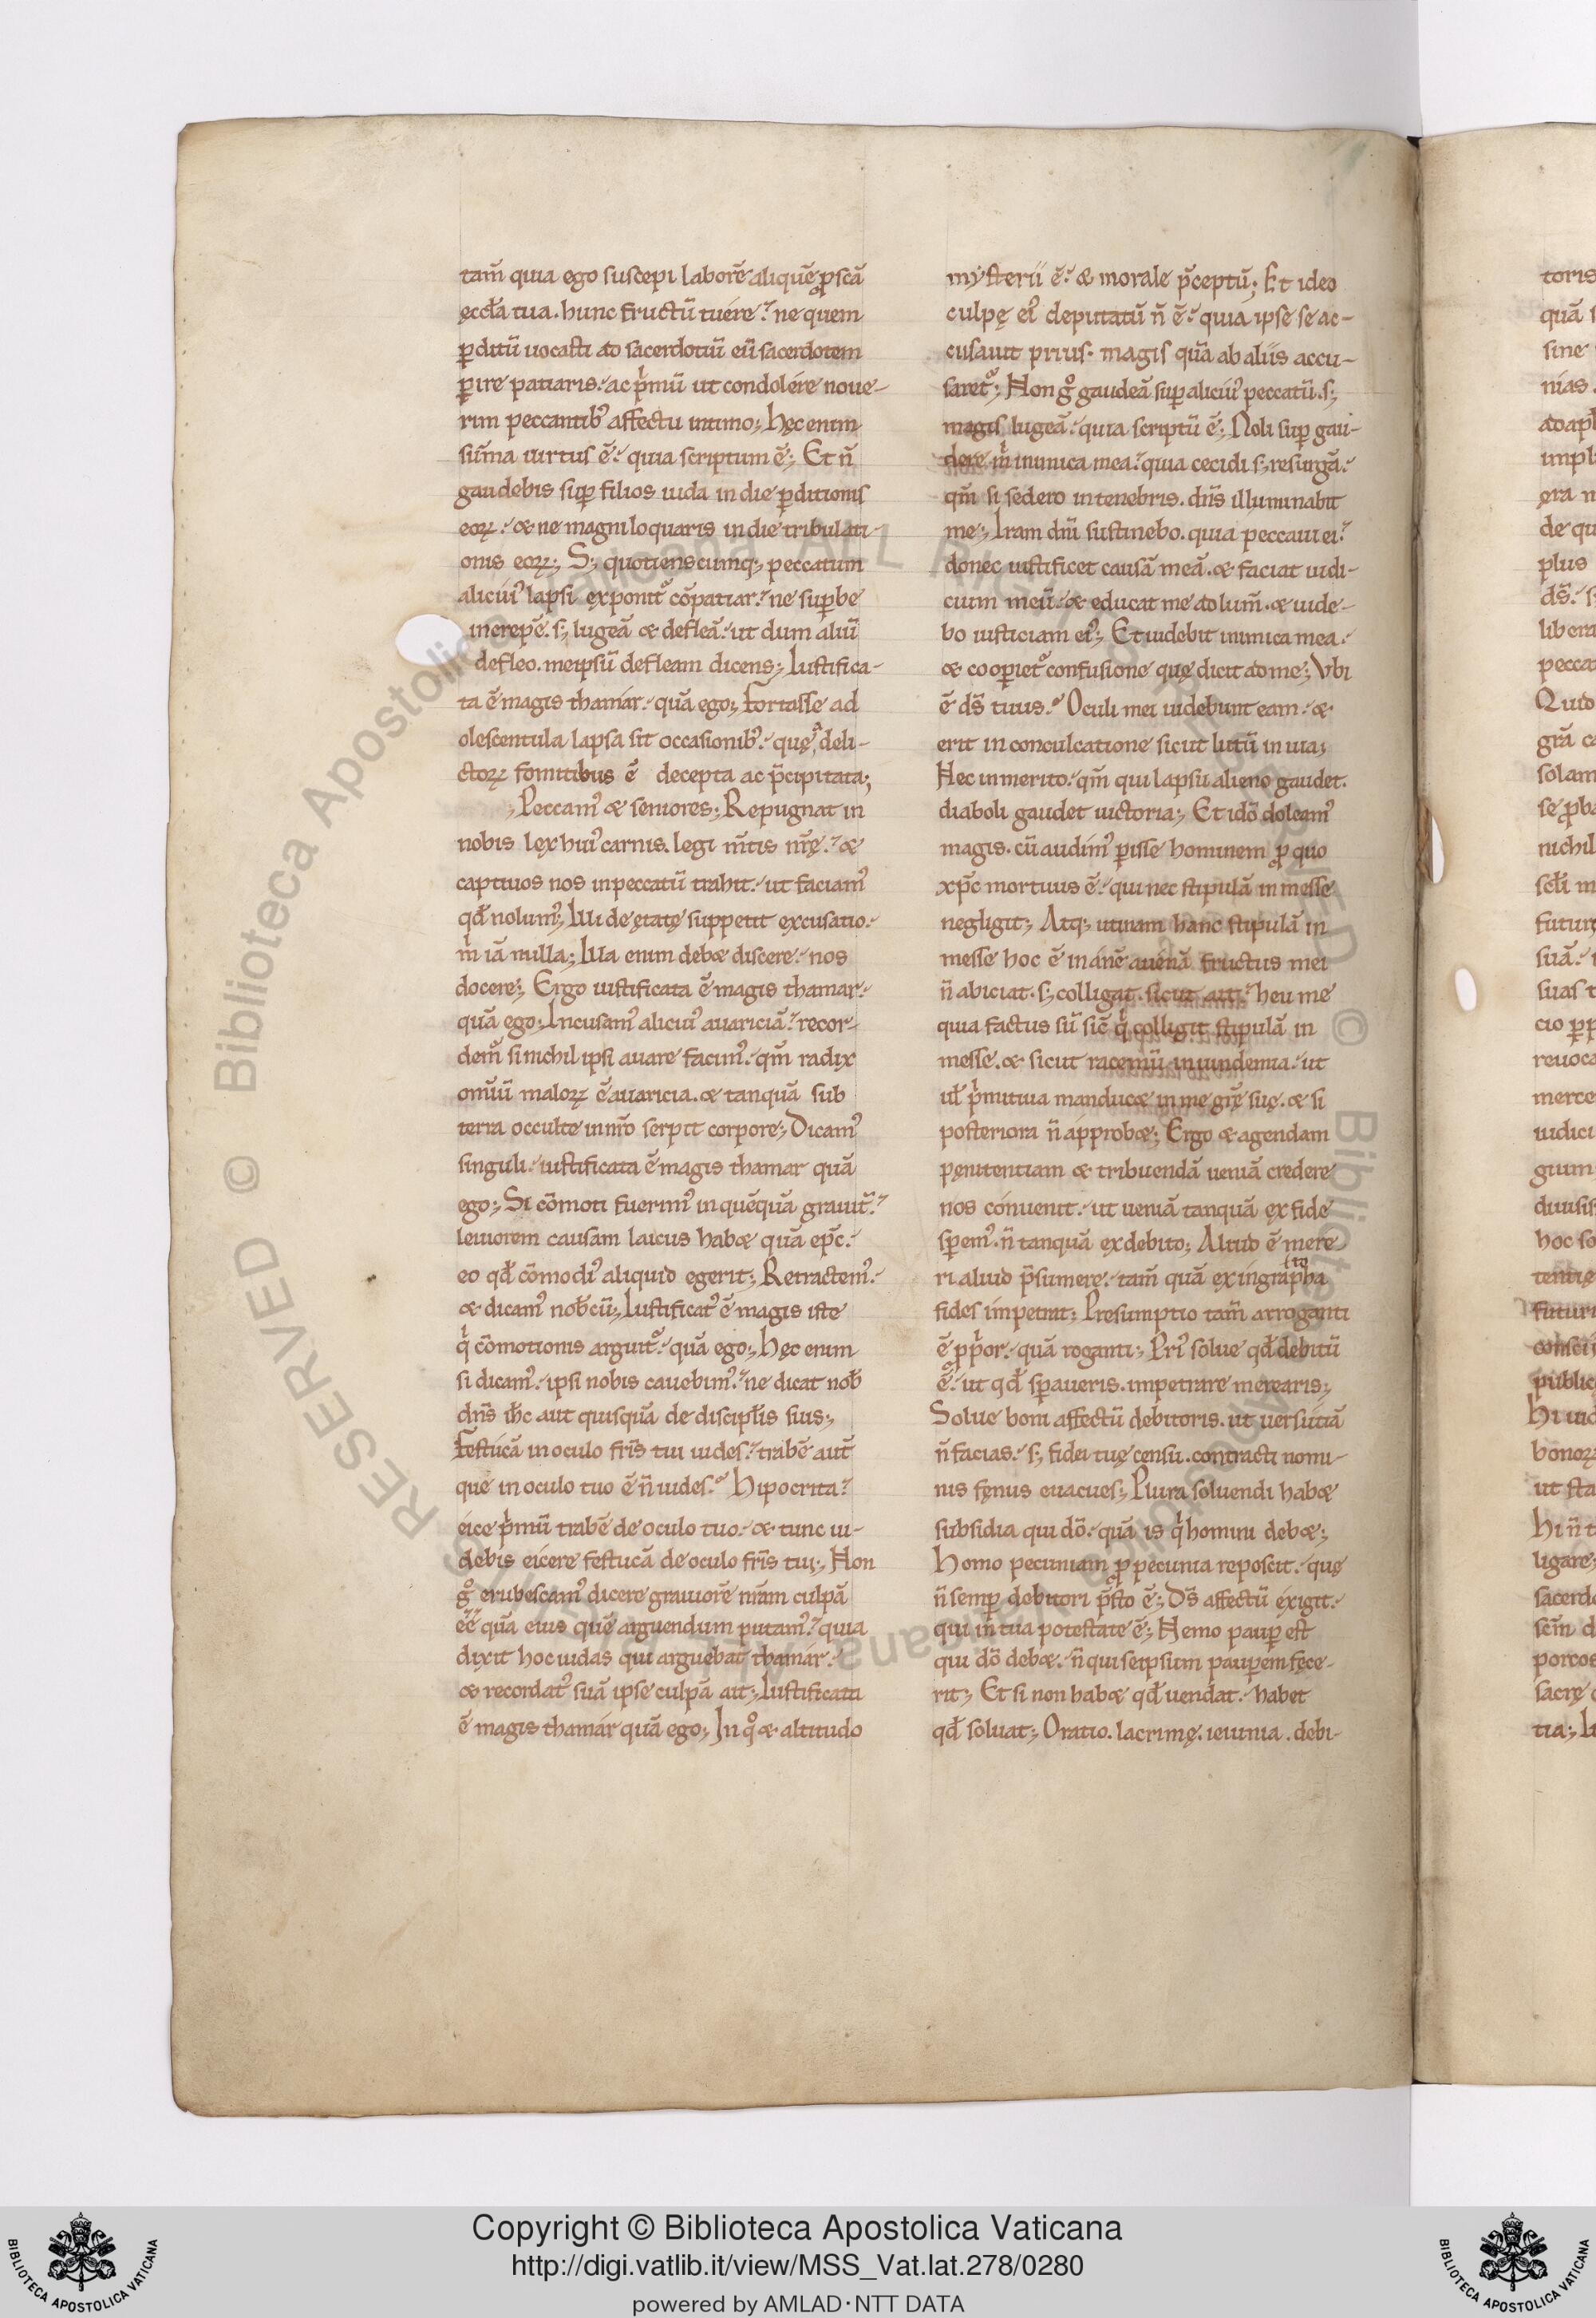 tam̄ quia ego suscepi laborē aliquē ꝓ scā
ęccła tua. hunc fructū tuére. ne quem
ꝑditū uocasti ad sacerdotiū eū sacerdotem
ꝑire patiaris. ac pͥmū ut condolére noue-
rim peccantibꝰ affectu intimo; Hęc enim
sum̄a uirtus ē. quia scriptum ē; Et n̄
gaudebis suꝑ filios iuda in die ꝑditionis
eoꝝ. & ne magniloquaris in die tribulati-
onis eoꝝ; S; quotienscumq; peccatum
alicuiꝰ lapsi exponit᷑ cōpatiar. ne suꝑbe
increpē. s; lugeā & defleā. ut dum aliū
defleo. meipsū defleam dicens; Iustifica-
ta ē magis thamár. quā ego; Fortasse ad
olescentula lapsa sit occasionibꝰ. quę a deli-
ctoꝝ fomitibus ē decepta ac p̄cipitata;
; Peccamꝰ & seniores; Repugnat in
nobis lex huiꝰ carnis. legi m̄tis nr̄ę. &
captiuos nos in peccatū trahit. ut faciamꝰ
qđ nolumꝰ; Illi de ętatę suppetit excusatio.
mͥ iā nulla; Illa enim deb& discere. nos
docere; Ergo iustificata ē magis thamar.
quā ego; Incusamꝰ alicuiꝰ auariciā. recor-
dem᷑ si nichil ipsi auare facimꝰ. qm̄ radix
omīū maloꝝ ē auaricia. & tanquā sub
terra occulte in nr̄o serpit corpore; Dicamꝰ
singuli. iustificata ē magis thamar quā
ego; Si cōmoti fuerimꝰ in quēquā grauit̄.
leuiorem causam laicus hab& quā ep̄c.
eo qđ cōmodiꝰ aliquid egerit; Retractemꝰ.
& dicamꝰ nob̄cū; Iustificatꝰ ē magis iste
qͥ cōmotionis arguit᷑. quā ego; Hęc enim
si dicamꝰ. ipsi nobis cauebimꝰ. ne dicat nob̄
dn̄s ih̄c aut quisquā de discipłis suis;
Festucā in oculo fr̄is tui uides. trabē aut̄
que in oculo tuo ē n̄ uides. Hipocrita.
éice pͥmū trabē de oculo tuo. & tunc ui-
debis eícere festucā de oculo fr̄is tui; Non
gͦ erubescamꝰ dicere grauiorē nr̄am culpā
ēē quā eius quē arguendum putamꝰ. quia
dixit hoc iudas qui arguebat thamár.
& recordatꝰ suā ipse culpā ait; Iustificata
ē magis thamár quā ego; In qͦ & altitudo
mysterii ē. & morale p̄ceptū; Et ideo
culpę eiꝰ deputatū n̄ ē. quia ipse se ac-
cusauit prius. magis quā ab aliis accu-
saret᷑; Non gͦ gaudeā suꝑ alicuiꝰ peccatū. s;
magis lugeā. quia scriptū ē; Noli suꝑ gau-
dere mͥ inimica mea. quia cecidi s; resurgā.
qm̄ si sedero in tenebris. dn̄s illuminabit
me; Iram dn̄i sustinebo. quia peccaui ei.
donec iustificet causā meā. & faciat iudi-
cium meū. & educat me ad lum̄. & uide-
bo iusticiam eiꝰ; Et uidebit inimica mea.
& cooꝑiet᷑ confusione quę dicit ad me; Vbi
ē ds̄ tuus. Oculi mei uidebunt eam. &
erit in conculcatione sicut lutū in uia;
Hec inmerito. qm̄ qui lapsu alieno gaudet.
diaboli gaudet uictoria; Et idō doleamꝰ
magis. cū audimꝰ ꝑisse hominem ꝓ quo
xp̄c mortuus ē. qui nec stipulā in messe
negligit; Atq; utinam hanc stipulā in
messe hoc ē inánē auenā fructus mei
n̄ abiciat. s; colligat. sicut ait. heu me
quia factus sū sic̄ qͥ colligit stipulā in
messe. & sicut racemū in uindemia. ut
uł pͥmitiua manduc& in me gr̄ę suę. & si
posteriora n̄ approb&; Ergo & agendam
pęnitentiam & tribuendā ueniā credere
nos cónuenit. ut ueniā tanquā ex fide
sꝑemꝰ. n̄ tanquā ex debito; Aliud ē mere
ri aliud p̄sumere. tam̄ quā ex íngrapha
fides impetrat; Presumptio tam̄ arroganti
ē ꝓpͥor. quā roganti; Priꝰ solue qđ debitū
ē. ut qđ sꝑaueris. impetrare merearis;
Solue boni affectū debitoris. ut uersutiā
n̄ facias. s; fidei tuę censu. contracti nomi-
nis fęnus euacues; Plura soluendi hab&
subsidia qui dō. quā is qͥ homini deb&;
Homo pecuniam ꝓ pecunia reposcit. quę
n̄ semꝑ debitori p̄sto ē; Ds̄ affectū éxigit.
qui in tua potestate ē; Nemo pauꝑ est
qui dō deb&. n̄ qui seipsum pauꝑem fęce-
rit; Et si non hab& qđ uendat. habet
qđ soluat; Oratio. lacrimę. ieiunia. debi-
toris
sine
nias.
plus
Copyright © Biblioteca Apostolica Vaticana
http://digi.vatlib.it/view/MSS_Vat.lat.278/0280
powered by AMLAD·NTT DATA
BIBLIOTECA APOSTOLICA VATICANA
BIBLIOTECA APOSTOLICA VATICANA